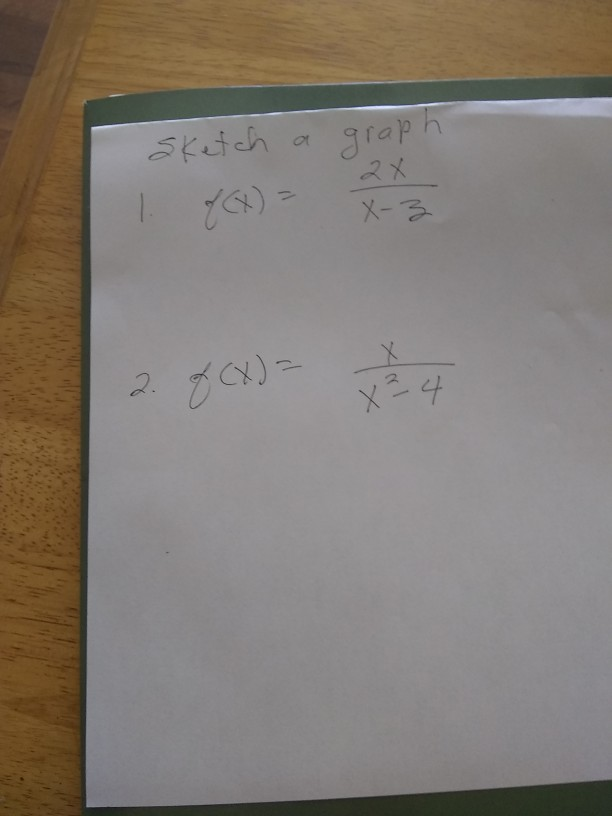 Sketch a graph
1. f(x) = 2x / x-3
2. f(x) = x / x²-4